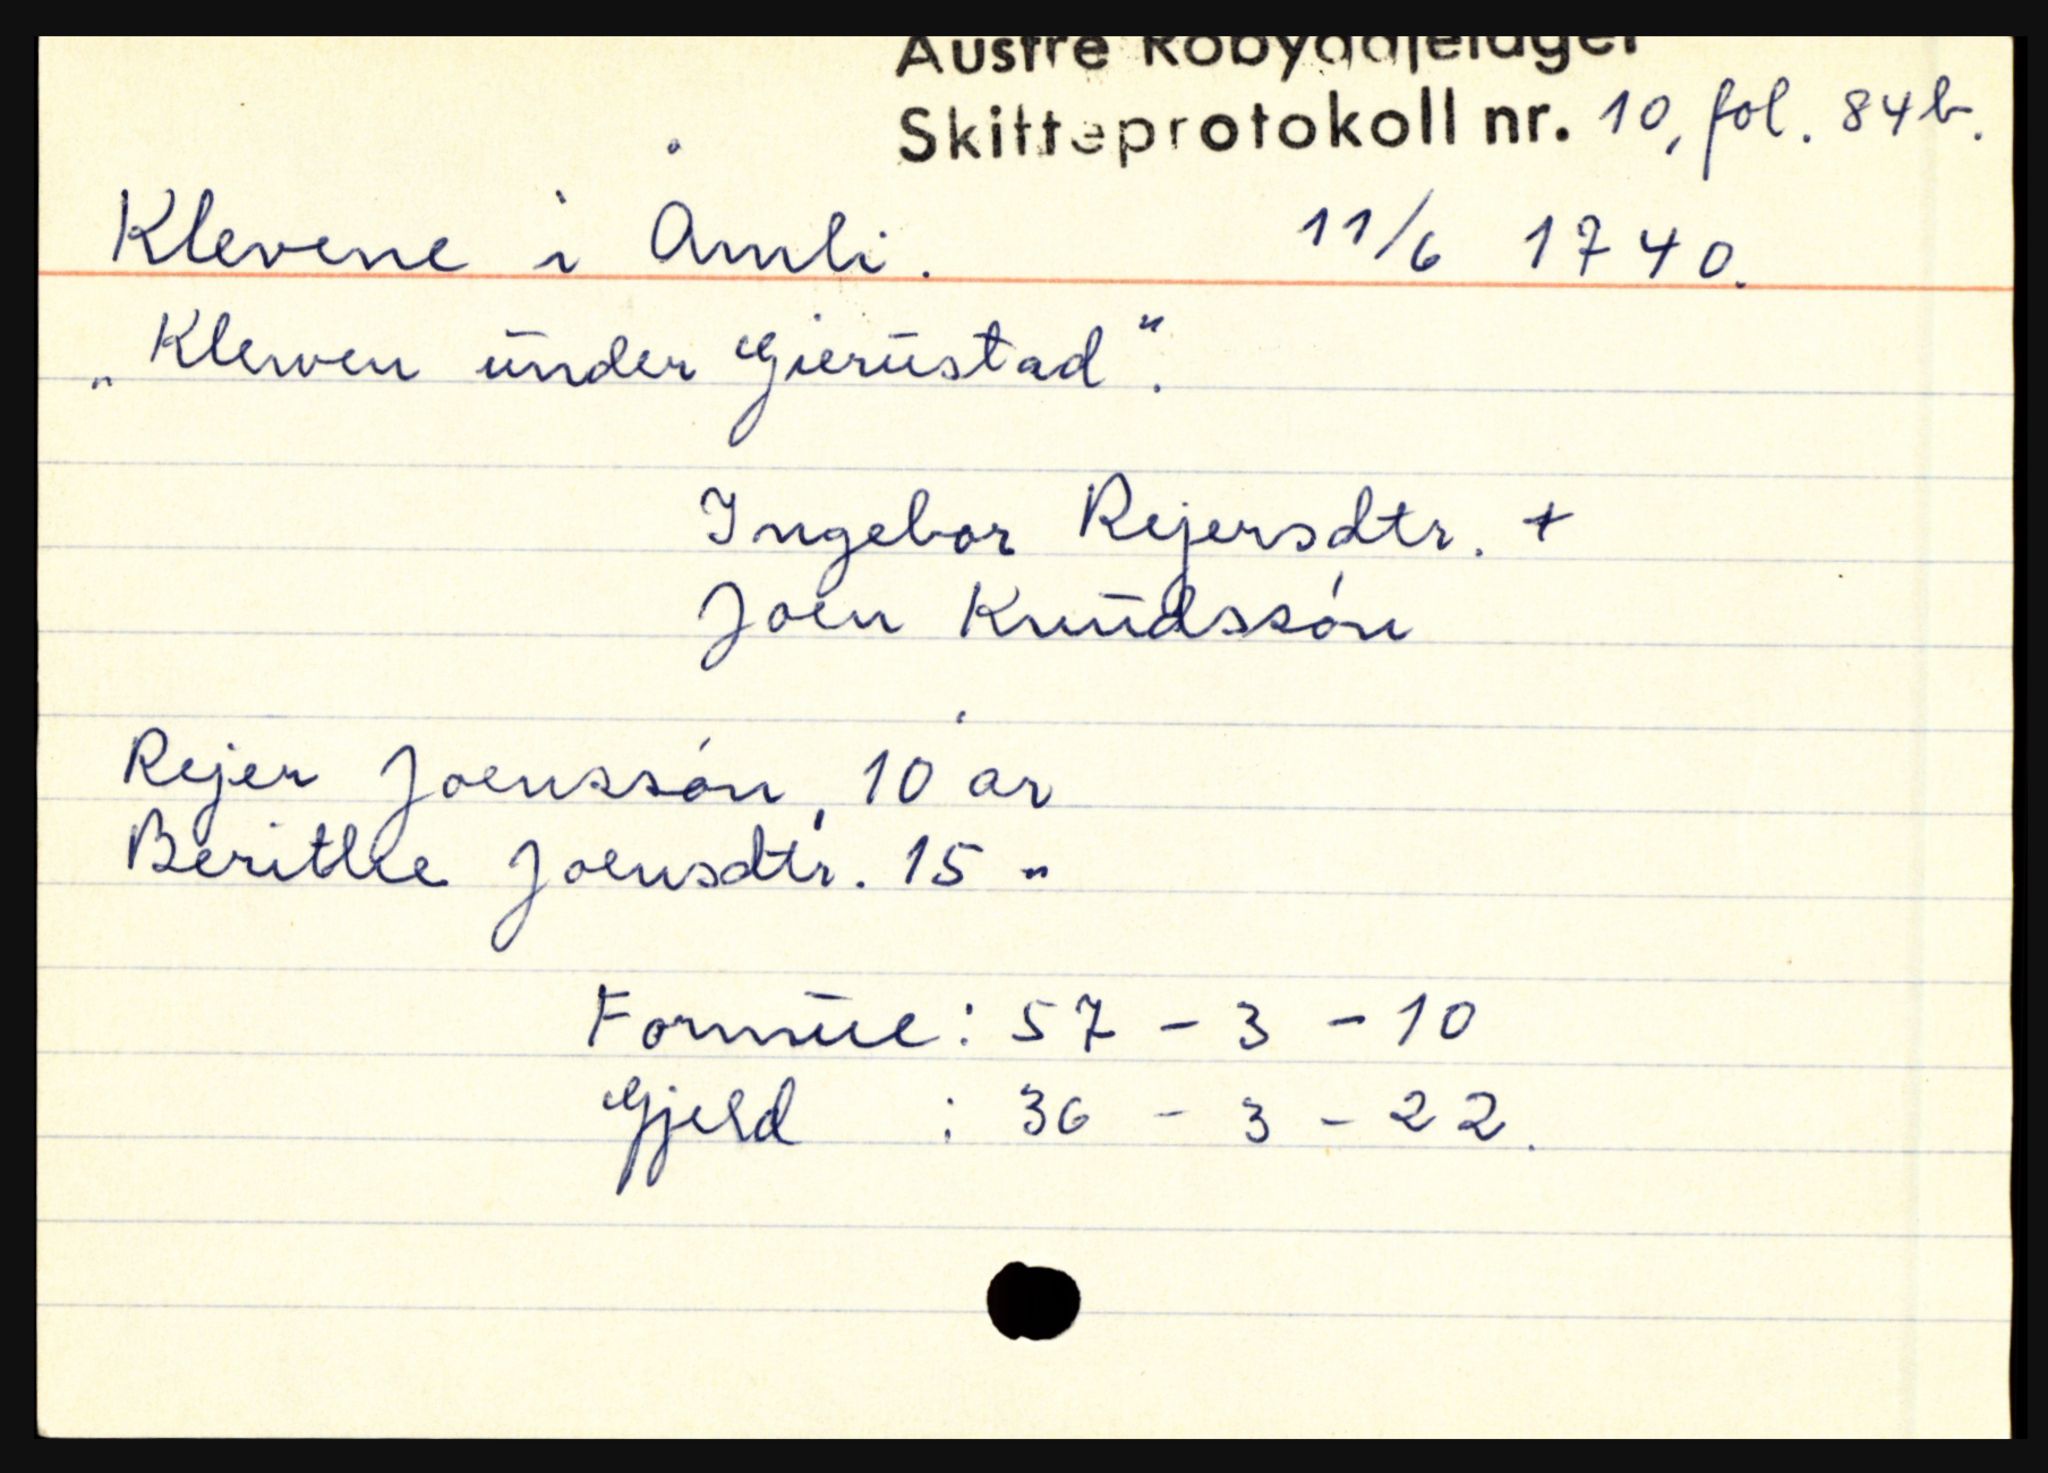 Austre Robyggjelaget
Skifteprotokoll nr. 10, fol. 84b.
Klevene i Åmli. 11/6 1740.
„Klewen under Gierustad“.
Ingebor Rejersdtr. +
Joen Knudssón
Rejer Joenssón, 10 år
Berithe Joensdtr. 15 "
Formue: 57 - 3 - 10
Gjeld : 36 - 3 - 22.